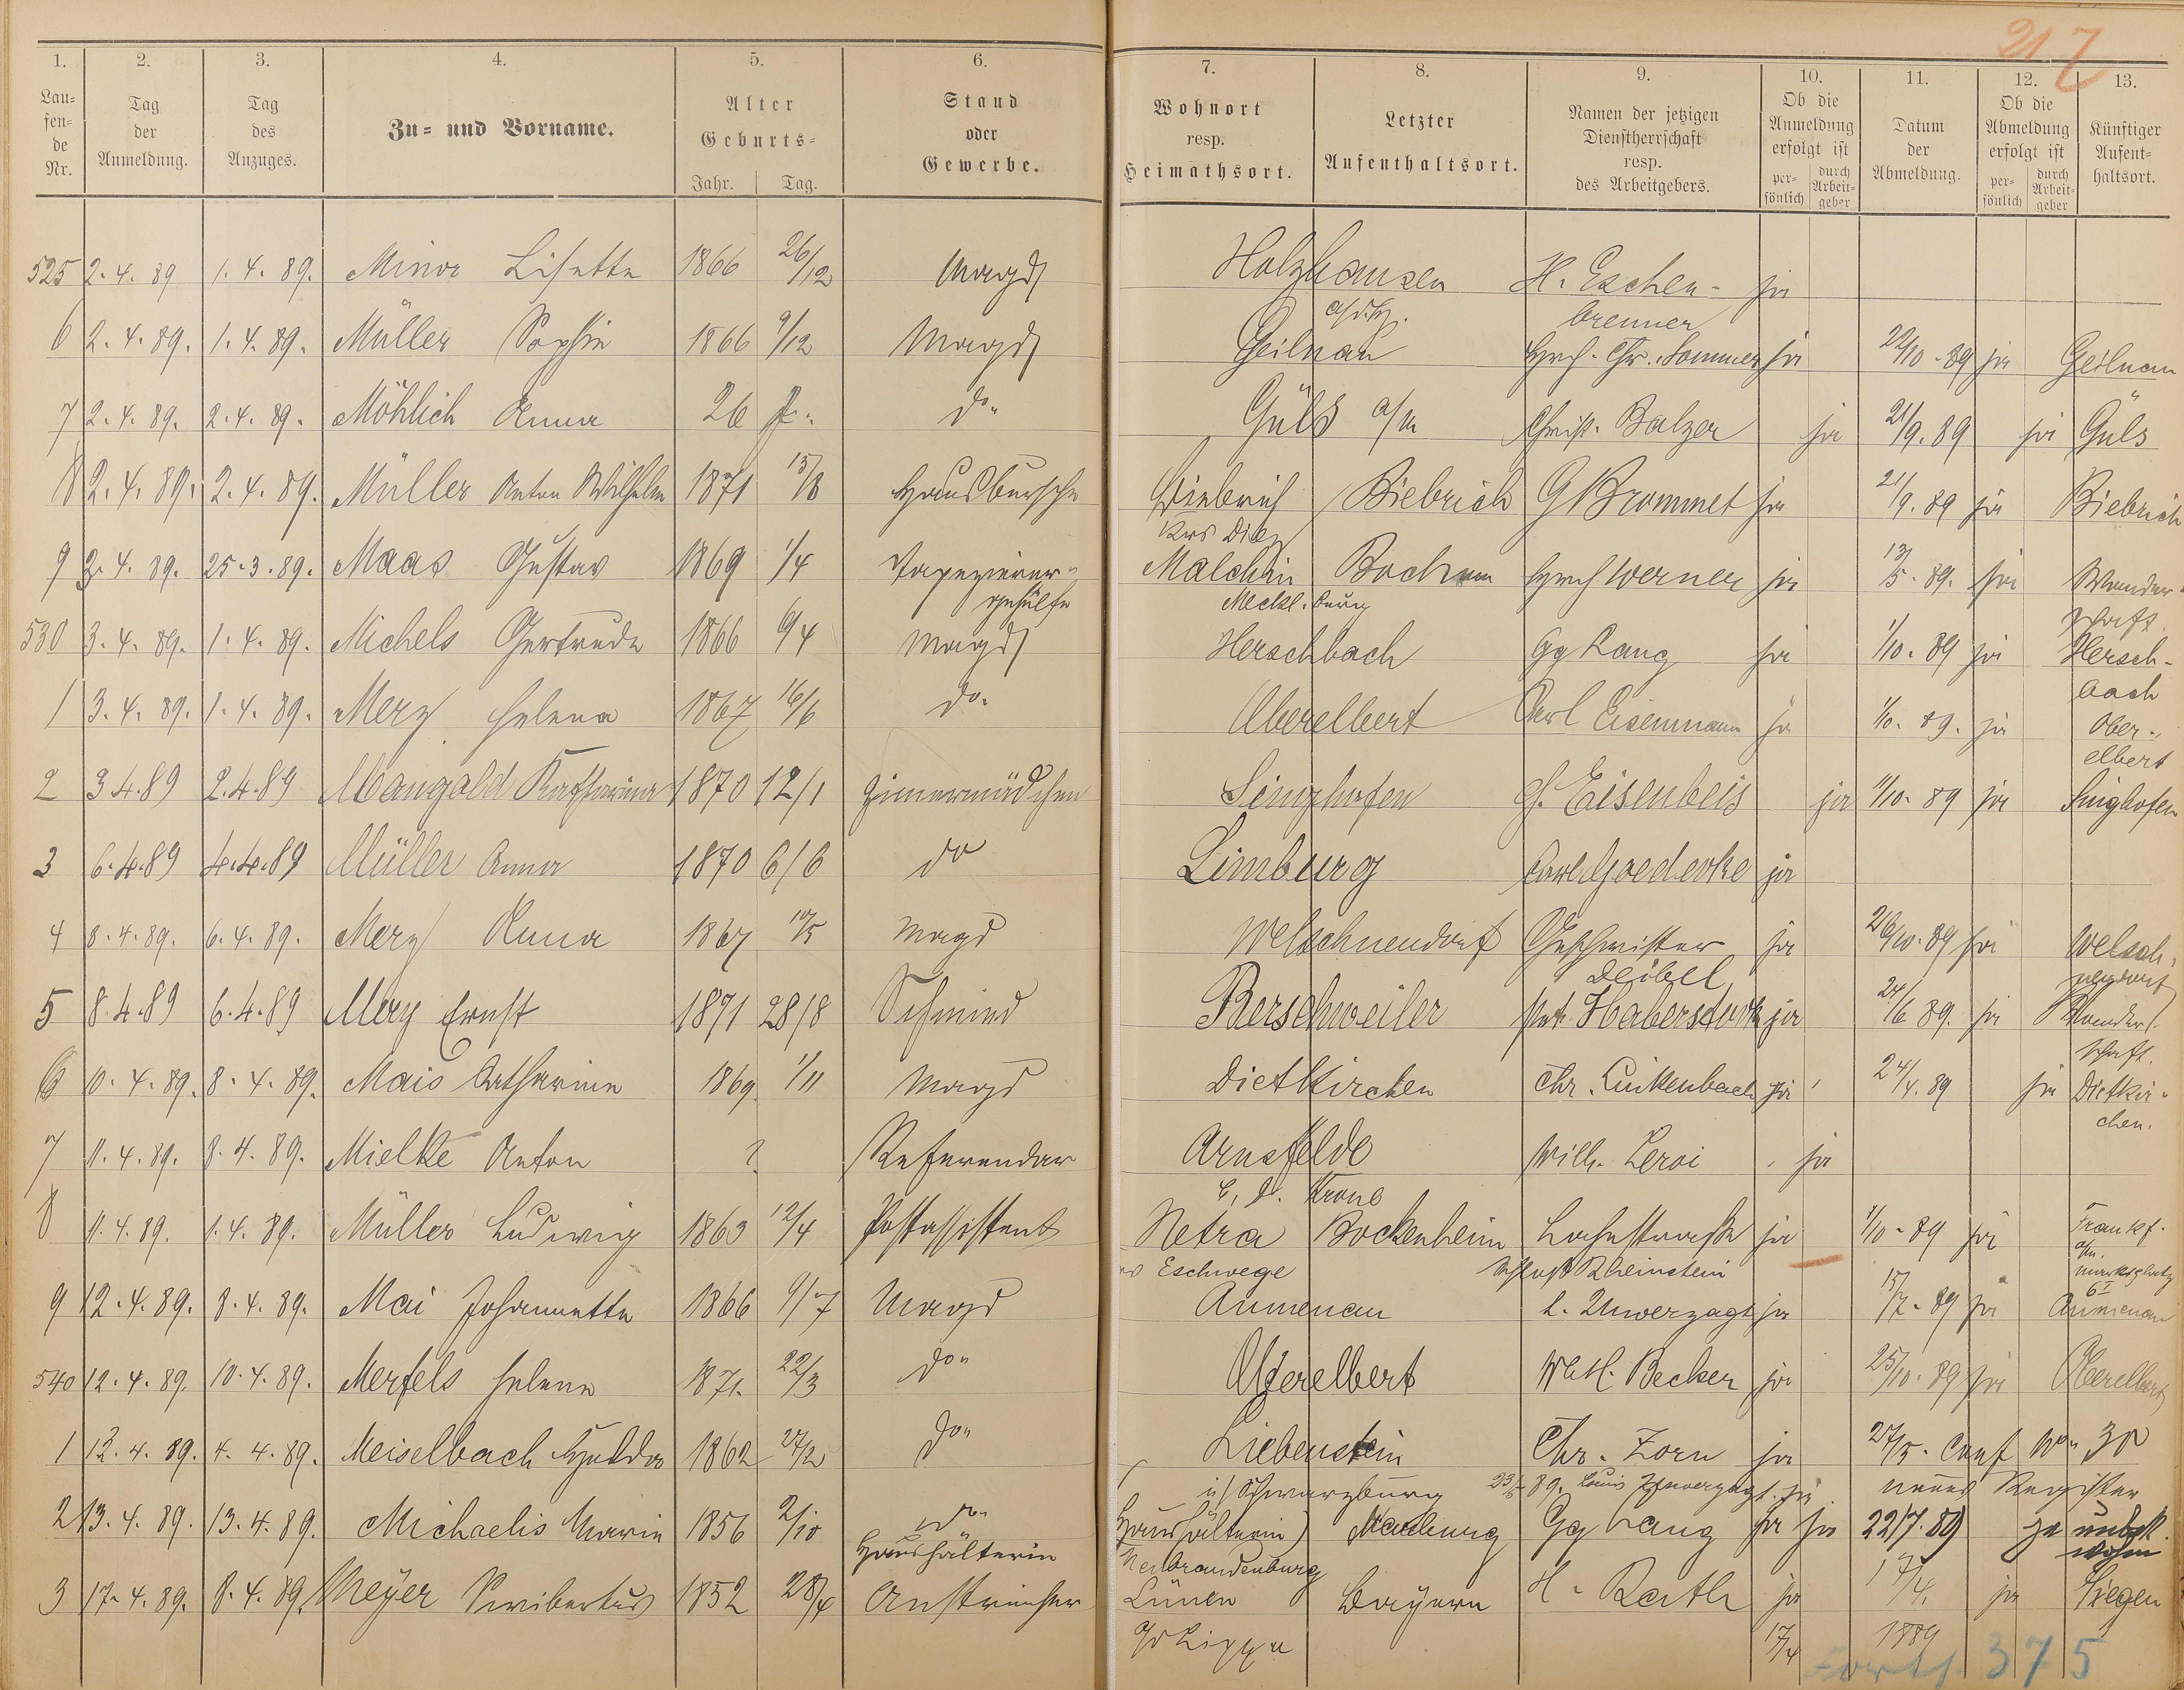 217
1. 2. 3. 4. 5. 6. 7. 8. 9. 10. 11. 12. 13.
Lau=fen=de Nr. Tag der Anmeldung. Tag des Anzuges. Zu= und Vorname. Alter Geburts= Jahr. Tag. Stand oder Gewerbe. Wohnort resp. Heimathsort. Letzter Aufenthaltsort. Namen der jetzigen Dienstherrschaft resp. des Arbeitgebers. Ob die Anmeldung erfolgt ist per=sönlich durch Arbeit=geber Datum der Abmeldung. Ob die Abmeldung erfolgt ist per=sönlich durch Arbeit=geber Künftiger Aufent=haltsort.
525 2.4.89 1.4.89. Minor Lisette 1866 26/12 Magd Holzhausen H. Eschen- ja
a/d. brenner
6 2.4.89. 1.4.89. Müller Sophie 1866 9/12 Magd Geilnau Chr. Sommer ja 22/10-89 ja Geilnau
7 2.4.89. 2.4.89. Möhlich Anna 26 J. do Güls a/M Christ. Balzer ja 21/9.89 ja Güls
8 2.4.89. 2.4.89. Müller Anton Wilhelm 1871 15/8 Hausbursche Biebrich G Brommet ja 21/9.89 ja Biebrich
Krs Diez
9 2.4.89. 25.3.89. Maas Gustav 1869 1/4 Tapezierer- Malchin Bochum Hrch Werner ja 13/5.89. ja Wander-
gehülfe Meckl.burg schaft.
530 3.4.89. 1.4.89. Michels Gertrude 1866 6/4 Magd Herschbach Gg Lang ja 1/10.89 ja Hersch-
bach
1 3.4.89. 1.4.89. Merz Helena 1867 16/6 do. Oberelbert Carl Eisenmann ja 1/10.89. ja Ober-
elbert
2 3.4.89 2.4.89 Mangold Katharina 1870 12/1 Zimermädchen Singhofen Eisenbeis ja 1/10.89 ja Singhofen
3 6.4.89 4.4.89 Müller Anna 1870 6/6 do Limburg Carl Goedecke ja
4 8.4.89. 6.4.89. Merz Anna 1867 10/5 Magd Welschneudorf Geschwister ja 26/10.89 ja Welsch-
Deibel neudorf
5 8.4.89 6.4.89 Mery Ernst 1871 28/8 Schmied Berschweiler Pet. Haberstock ja 24/6 89. ja Wander-
schaft.
6 10.4.89. 8.4.89. Mais Catharine 1869. 1/11 Magd Dietkirchen Chr. Linkenbach ja 24/4.89 ja Dietkir-
chen.
7 11.4.89. 8.4.89. Mielke Anton ? Referendar Arnsfelde Wilh. Leroi ja
Krone
8 11.4.89. 1.4.89. Müller Ludwig 1863 12/4 Postassistent Netra Bockenheim Lahnstraße ja 1/10-89 ja Frankf.
Eschwege Schloß Rheinstein a/M. Marktplatz 6 I
9 12.4.89. 8.4.89. Mai Johannette 1866 9/7 Magd Aumenau L. Unverzagt ja 15/7-89 ja Aumenau
540 12.4.89. 10.4.89. Merfels Helene 1871. 22/3 do" Oberelbert Becker ja 25/10.89 ja Oberelbert
1 12.4.89. 4.4.89. Meiselbach Hulda 1862 27/2 do" Liebenstein Chr. Zorn ja 27/5. No. 30
i/ Schwarzburg 23/5 89. Louis Unverzagt. ja neues Register
2 13.4.89. 13.4.89. Michaelis Marie 1856 2/10 do. (Haushälterin) Marburg Gg Lang ja ja 22/7.89 ja unbek.
Haushälterin Neubrandenburg wohin
3 17.4.89. 8.4.89. Meyer Swibertus 1852 28/4 Anstreicher Lünen Bayern H. Rath ja 17/4. ja Siegen
a/d Lippe 17/4 1889
Forts. 375